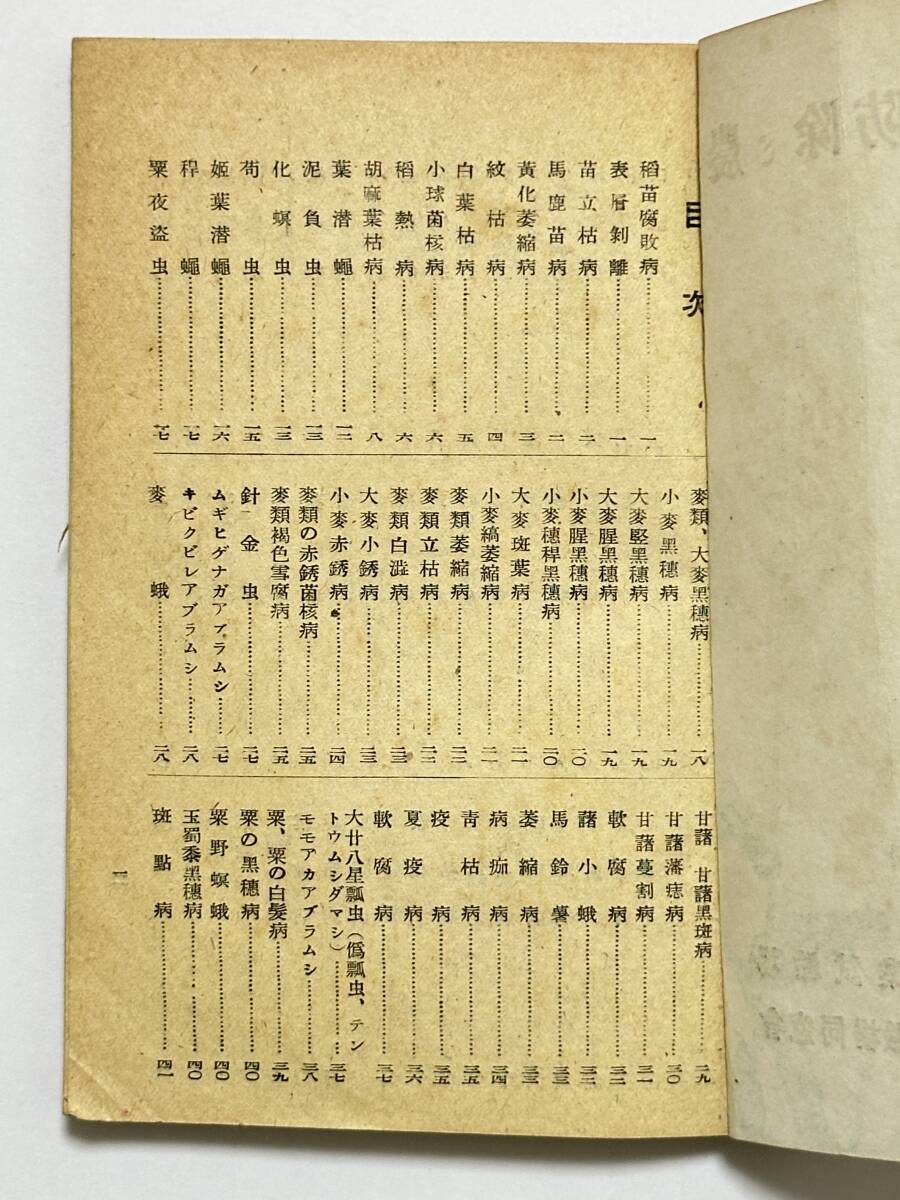 目次
稻苗腐敗病……一
表層剝離……一
苗立枯病……二
馬鹿苗病……二
黃化萎縮病……三
紋枯病……四
白葉枯病……五
小球菌核病……六
稻熱病……六
胡麻葉枯病……八
葉潜蠅……一二
泥負虫……一三
化螟虫……一三
苞虫……一五
姬葉潜蠅……一六
稈蠅……一七
粟夜盜虫……一七
麥類、大麥黑穗病……一八
小麥黑穗病……一九
大麥堅黑穗病……一九
大麥腥黑穗病……一九
小麥腥黑穗病……二〇
小麥穗稈黑穗病……二〇
大麥斑葉病……二一
小麥縞萎縮病……二一
麥類萎縮病……二二
麥類立枯病……二二
麥類白澁病……二三
大麥小銹病……二三
小麥赤銹病……二四
麥類の赤銹菌核病……二五
麥類褐色雪腐病……二五
針金虫……二七
ムギヒゲナガアブラムシ……二七
キビクビレアブラムシ……二八
麥蛾……二八
甘藷 甘藷黑斑病……二九
甘藷瘤病……三〇
甘藷蔓割病……三一
軟腐病……三二
藷小蛾……三三
馬鈴薯……三三
萎縮病……三三
病痂病……三四
靑枯病……三五
疫病……三五
夏疫病……三六
軟腐病……三七
大廿八星瓢虫（僞瓢虫、テン
トウムシダマシ）……三七
モモアカアブラムシ……三八
粟、粟の白髮病……三九
粟の黑穗病……四〇
粟野螟蛾……四〇
玉蜀黍黑穗病……四〇
斑點病……四一
一
防除
同志會